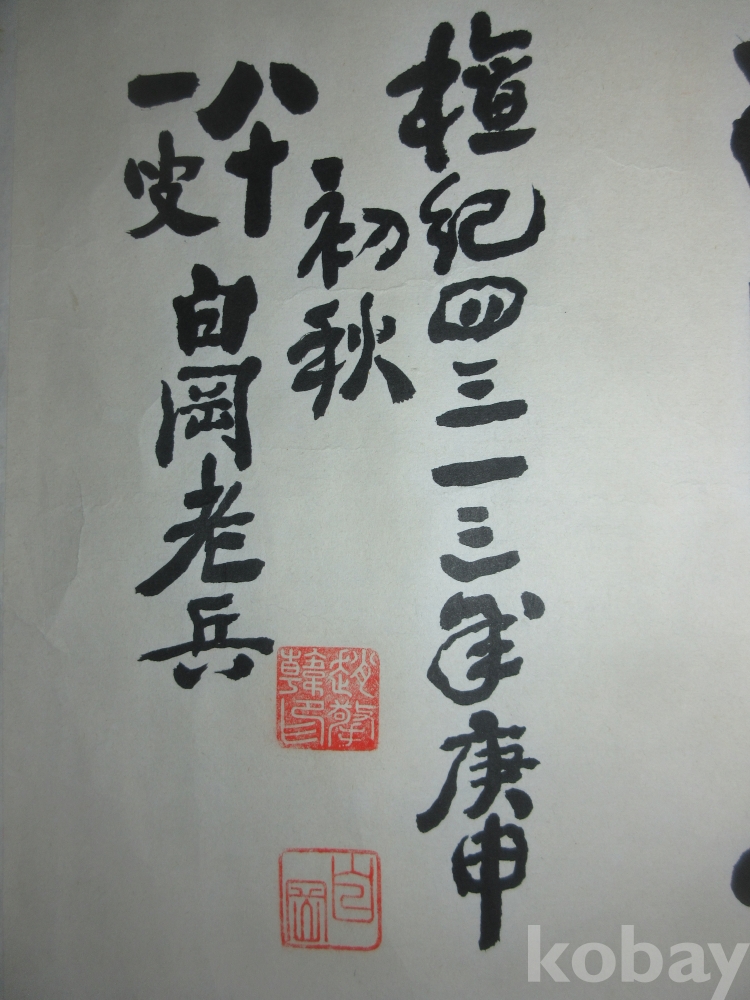 檀紀四三一三年庚申
初秋
八十
一叟
白岡老兵
趙擎
韓印
白岡
kobay